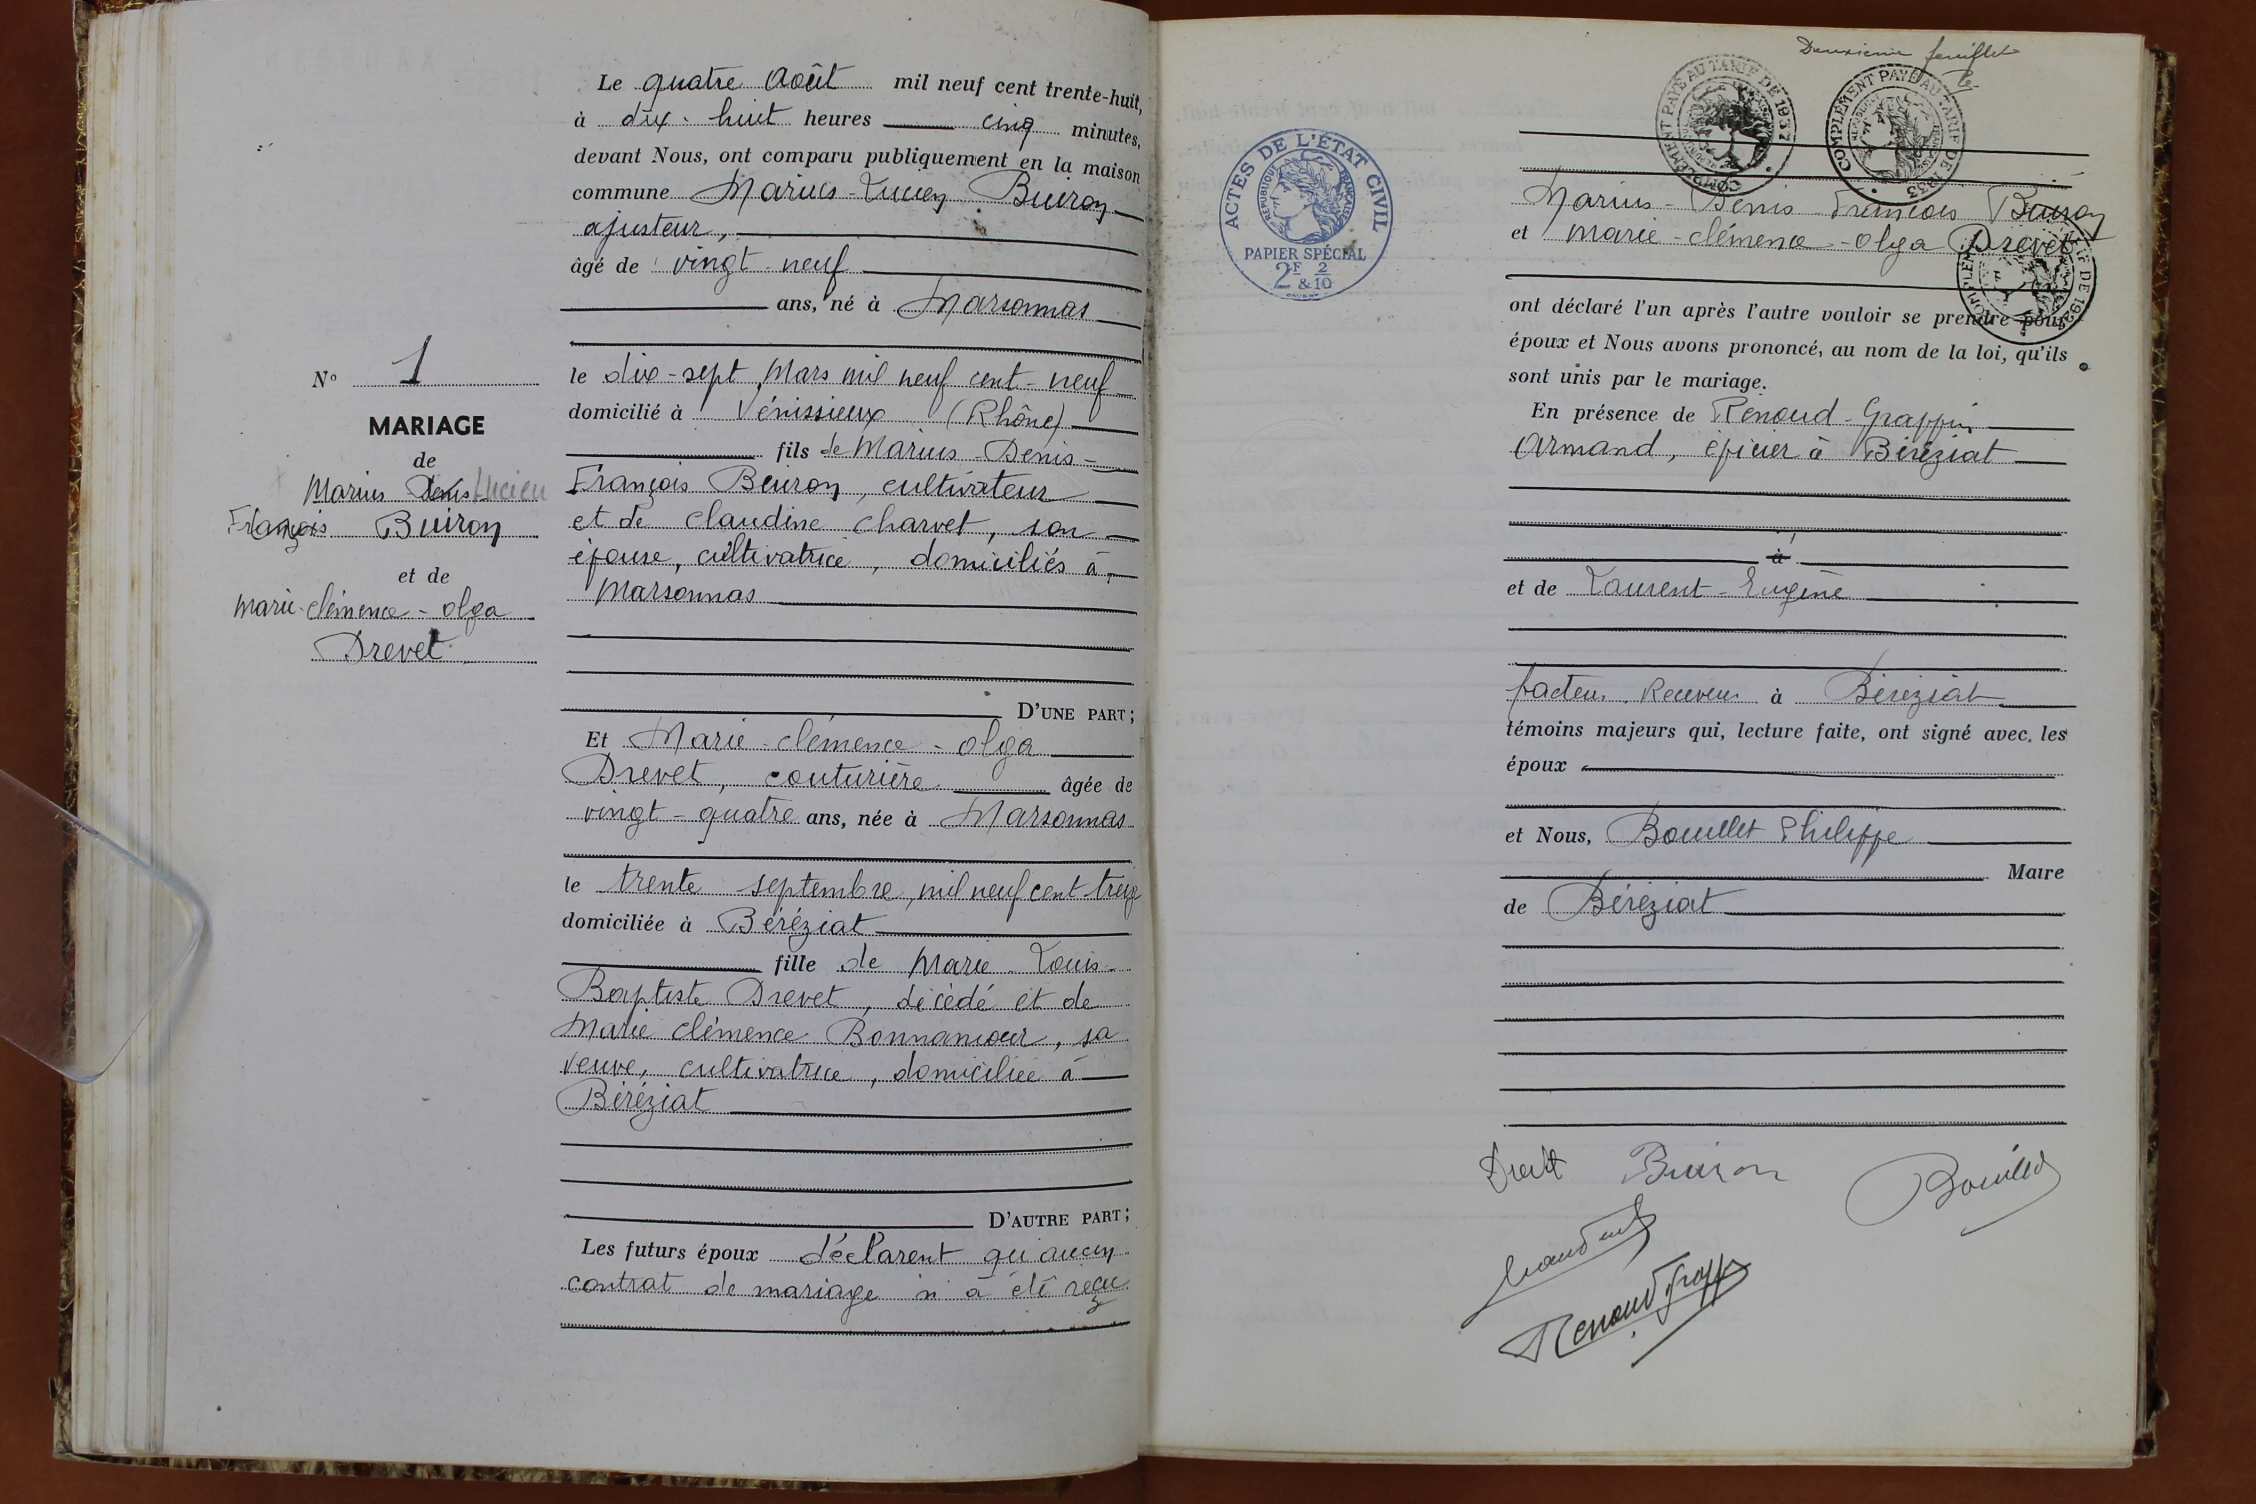 N° 1
MARIAGE
de
Marius Denis Lucien
François Buiron
et de
Marie-Clémence-Olga
Drevet
Le quatre Août mil neuf cent trente-huit,
à dix-huit heures cinq minutes,
devant Nous, ont comparu publiquement en la maison
commune Marius-Lucien Buiron
ajusteur,
âgé de vingt-neuf
ans, né à Marsonnas
le dix-sept Mars mil neuf cent-neuf
domicilié à Vénissieux (Rhône)
fils de Marius-Denis-
François Buiron, cultivateur
et de Claudine Charvet, son
épouse, cultivatrice, domiciliés à
Marsonnas
D'UNE PART;
Et Marie-Clémence-Olga
Drevet, couturière âgée de
vingt-quatre ans, née à Marsonnas
le trente septembre, mil neuf cent treize
domiciliée à Béréziat
fille de Marie Louis-
Baptiste Drevet, décédé et de
Marie Clémence Bonnamour, sa
veuve, cultivatrice, domiciliée à
Béréziat
D'AUTRE PART;
Les futurs époux déclarent qu'aucun
contrat de mariage n'a été reçu
Deuxième feuillet
COMPLÉMENT PAYÉ AU TARIF DE 1937
COMPLÉMENT PAYÉ AU TARIF DE 1933
ACTES DE L'ÉTAT CIVIL
RÉPUBLIQUE FRANÇAISE
PAPIER SPÉCIAL
2F 2
& 10
Marius-Denis-François Buiron
et Marie-Clémence-Olga Drevet
ont déclaré l'un après l'autre vouloir se prendre pour
époux et Nous avons prononcé, au nom de la loi, qu'ils
sont unis par le mariage.
En présence de Renoud-Grappin
Armand, épicier à Béréziat
à
et de Laurent-Eugène
facteur Receveur à Béréziat
témoins majeurs qui, lecture faite, ont signé avec les
époux
et Nous, Bouillet Philippe
Maire
de Béréziat
Drevet Buiron Bouillet
Renoud Grapp